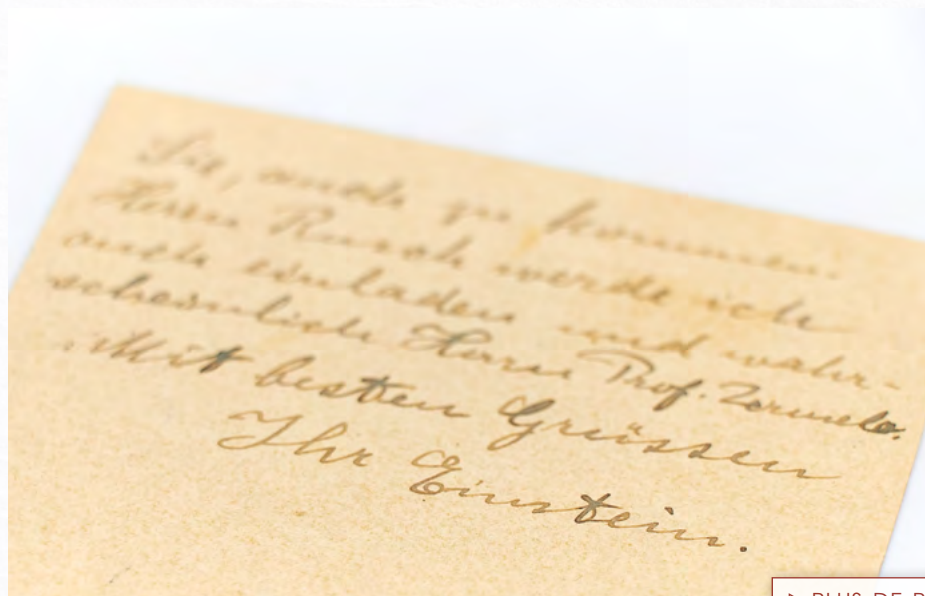 Sie, auch zu kommen.
Herrn Rusch werde ich
auch einladen und wahr-
scheinlich Herrn Prof. Zermelo.
Mit besten Grüssen
Ihr Einstein.
PLUS DE